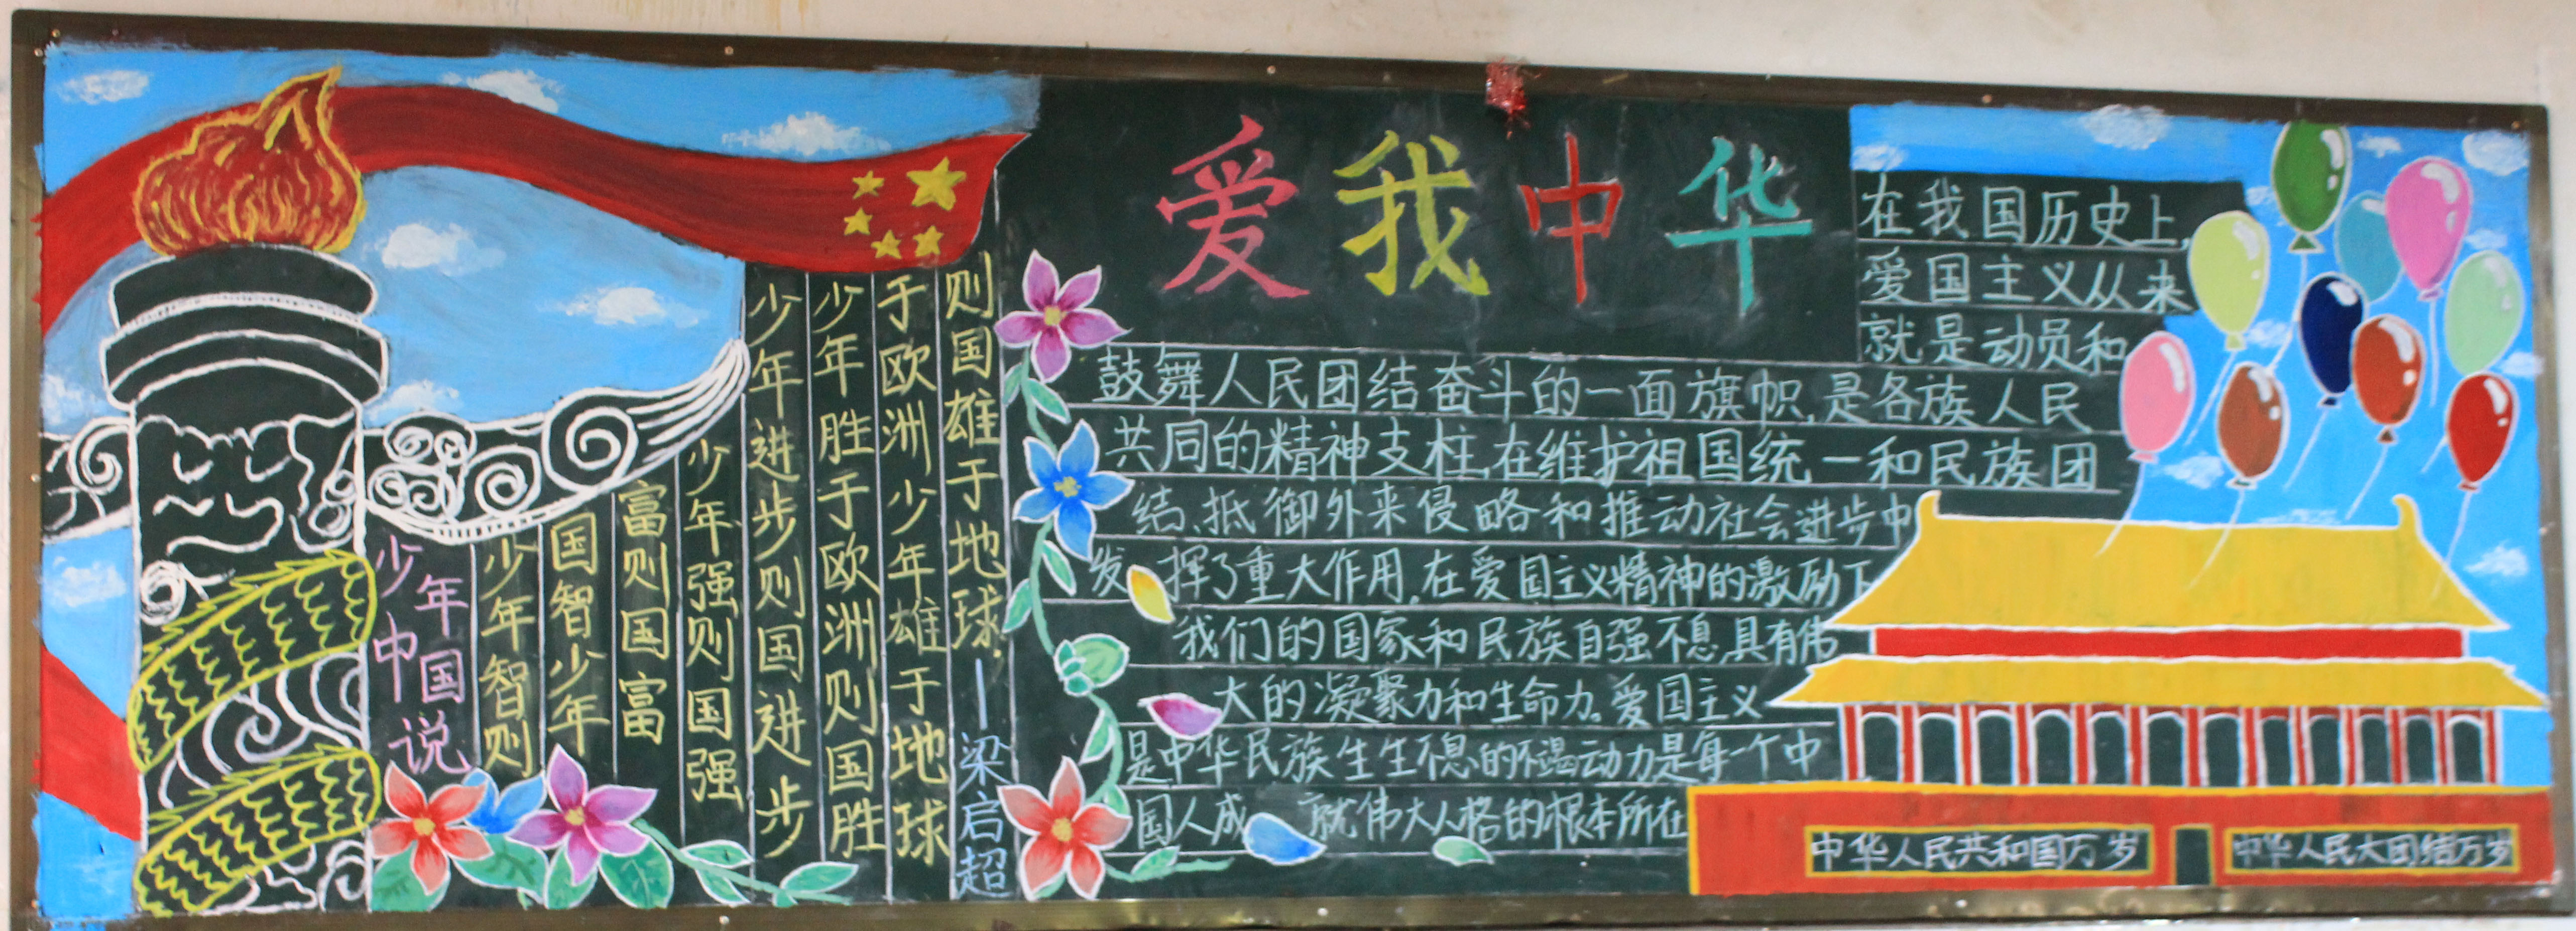 爱我中华
少年
中国
说
少年智则
国智少年
富则国富
少年强则国强
少年进步则国进步
少年胜于欧洲则国胜
于欧洲少年雄于地球
则国雄于地球.—梁启超
在我国历史上,
爱国主义从来
就是动员和
鼓舞人民团结奋斗的一面旗帜,是各族人民
共同的精神支柱,在维护祖国统一和民族团
结、抵御外来侵略和推动社会进步中
发挥了重大作用.在爱国主义精神的激励下
我们的国家和民族自强不息,具有伟
大的凝聚力和生命力。爱国主义
是中华民族生生不息的不竭动力是每一个中
国人成就伟大人格的根本所在
中华人民共和国万岁
中华人民大团结万岁